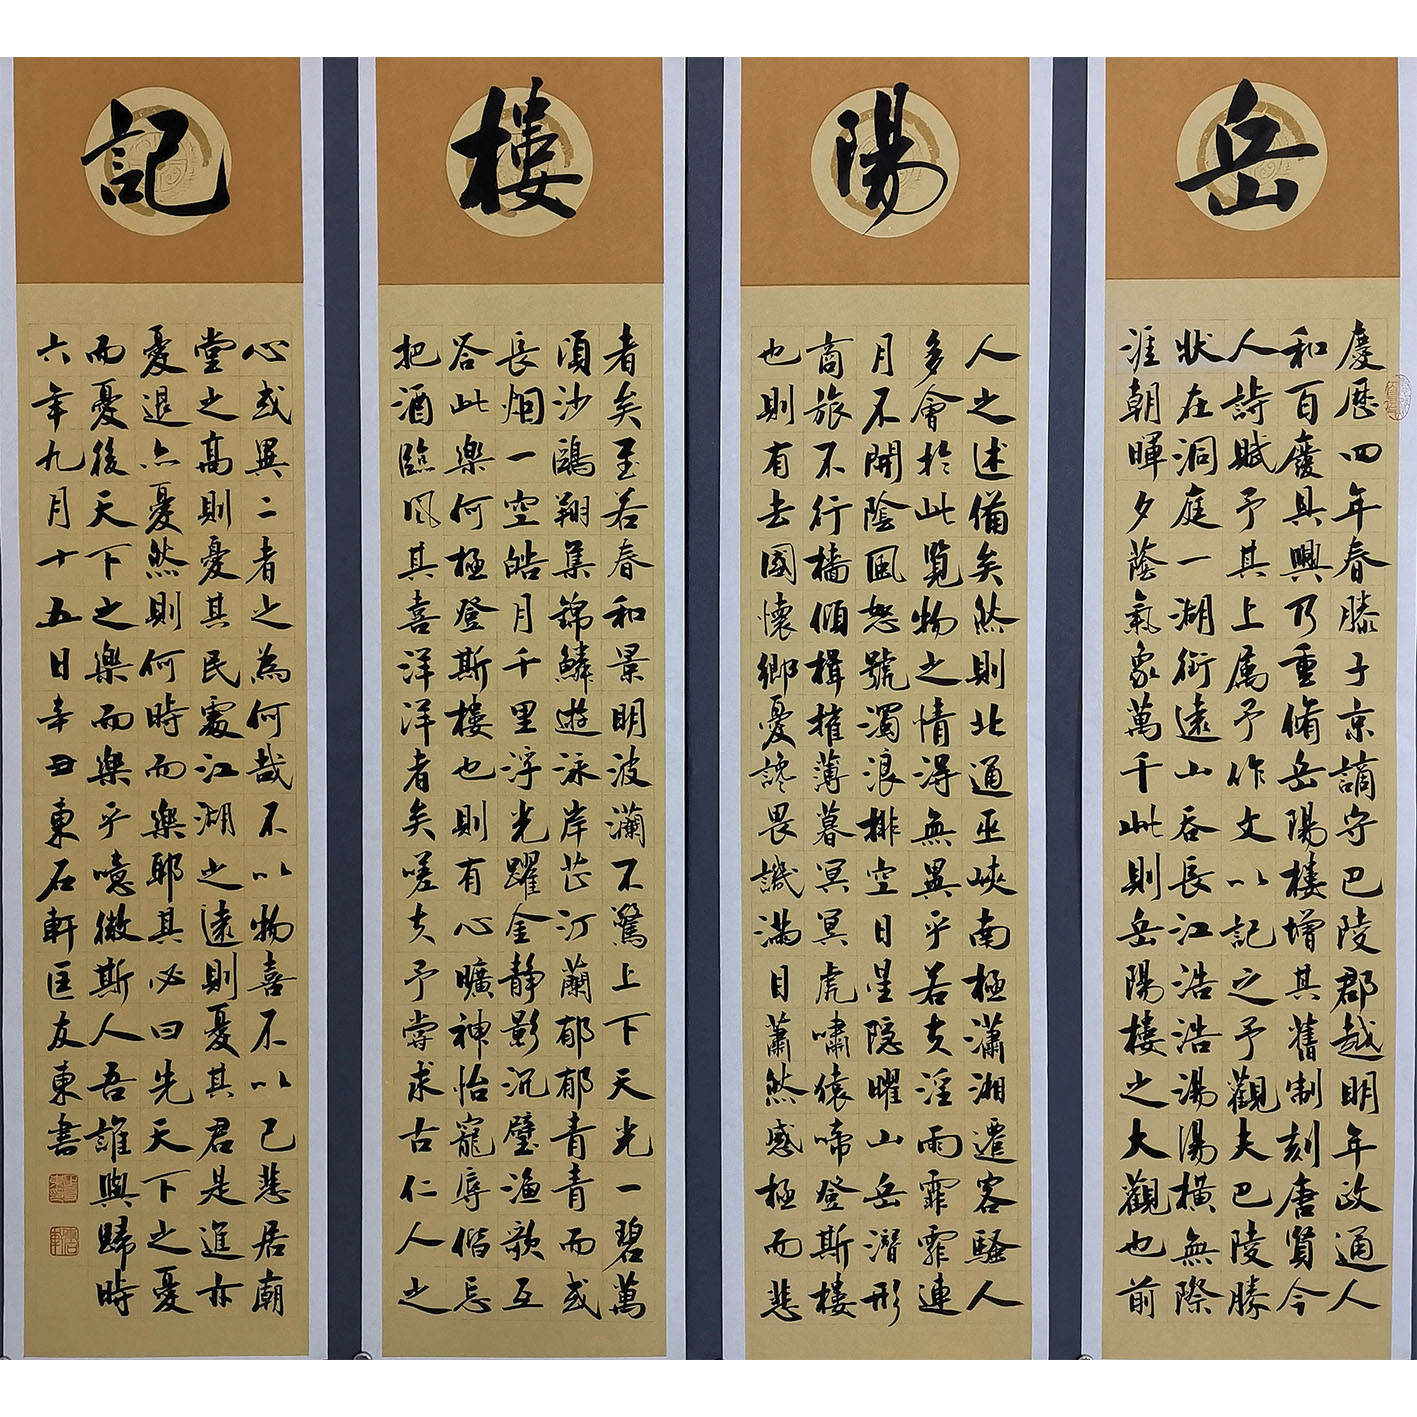 岳陽樓記
慶歷四年春滕子京謫守巴陵郡越明年政通人
和百廢具興乃重脩岳陽樓增其舊制刻唐賢今
人詩賦予其上属予作文以記之予觀夫巴陵勝
狀在洞庭一湖銜遠山吞長江浩浩湯湯橫無際
涯朝暉夕蔭氣象萬千此則岳陽樓之大觀也前
人之述備矣然則北通巫峽南極瀟湘遷客騷人
多會於此覽物之情得無異乎若夫淫雨霏霏連
月不開陰風怒號濁浪排空日星隱曜山岳潛形
商旅不行檣傾楫摧薄暮冥冥虎嘯猿啼登斯樓
也則有去國懷鄉憂讒畏譏滿目蕭然感極而悲
者矣至若春和景明波瀾不驚上下天光一碧萬
頃沙鷗翔集錦鱗遊泳岸芷汀蘭郁郁青青而或
長烟一空皓月千里浮光躍金靜影沉璧漁歌互
答此樂何極登斯樓也則有心曠神怡寵辱偕忘
把酒臨風其喜洋洋者矣嗟夫予嘗求古仁人之
心或異二者之為何哉不以物喜不以己悲居廟
堂之高則憂其民處江湖之遠則憂其君是進亦
憂退亦憂然則何時而樂耶其必曰先天下之憂
而憂後天下之樂而樂乎噫微斯人吾誰與歸時
六年九月十五日辛丑東石軒匡友東書